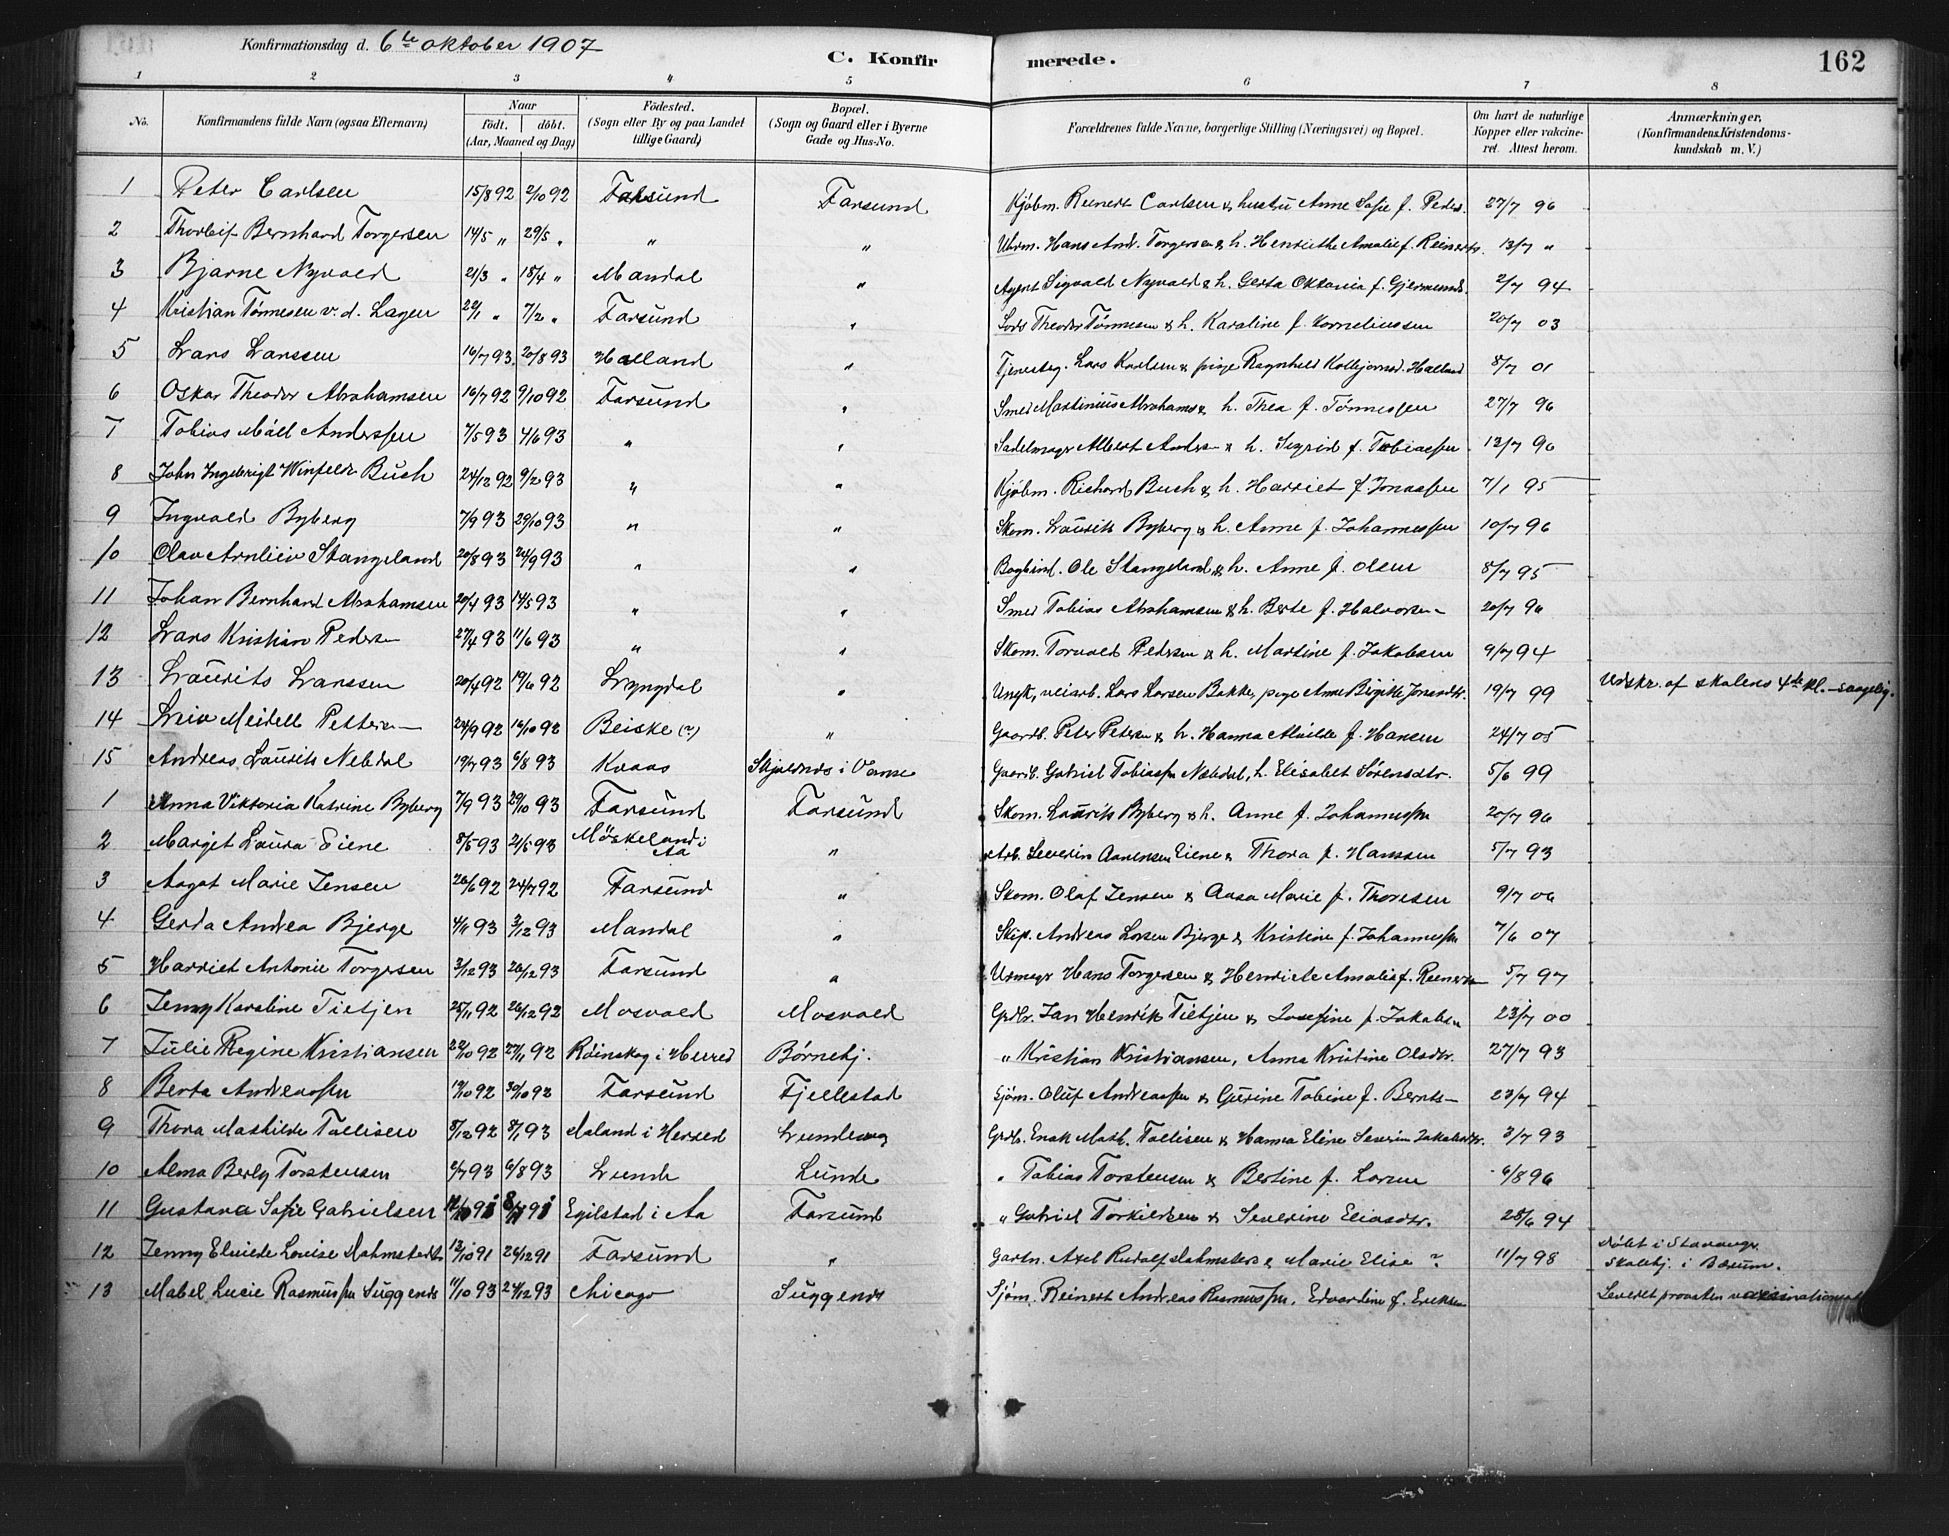 Konfirmationsdag d. 6te oktober 1907
C. Konfirmerede. 162
1 2 3 4 5 6 7 8
No. Konfirmandens fulde Navn (ogsaa Efternavn) Naar født. døbt. (Aar, Maaned og Dag) Fødested. (Sogn eller By og paa Landet tillige Gaard) Bopæl. (Sogn og Gaard eller i Byerne Gade og Hus-No. Forældrenes fulde Navne, borgerlige Stilling (Næringsvei) og Bopæl. Om havt de naturlige Kopper eller vakcineret. Attest herom. Anmærkninger, (Konfirmandens Kristendomskundskab m. V.)
1 Peter Carlsen 15/8 92 2/10 92 Farsund Farsund Kjøbm. Reinert Carlsen & hustru Anne Sofie f. Peders. 27/7 96
2 Thorleif Bernhard Torgersen 14/5 " 29/5 " " " Uhrm. Hans And. Torgersen & h. Henriette Amalie f. Reinerts. 13/7 "
3 Bjarne Nyvold 21/3 " 18/4 " Mandal " Agent Sigvald Nyvold & h. Gerta Oktavia f. Gjermunds. 2/7 94
4 Kristian Tønnesen v. d. Lagen 22/1 " 7/2 " Farsund " Lods Theodor Tønnesen & h. Karoline f. Korneliussen 20/7 03
5 Lars Larssen 16/7 93 20/8 93 Halland " Tjenesteg. Lars Karlsen & pige Ragnhild Kolbjørnsd. Halland 8/7 01
6 Oskar Theodor Abrahamsen 16/7 92 9/10 92 Farsund " Smed Martinius Abrahams & h. Thea f. Tønnessen 27/7 96
7 Tobias Mall Anderssen 7/5 93 4/6 93 " " Sadelmager Albert Anders. & h. Sigrid f. Tobiassen 13/7 96
8 John Ingebrigt Winfeldt Buch 24/12 92 9/2 93 " " Kjøbm. Richard Buch & h. Harriet f. Jonassen 7/1 95
9 Ingvald Byberg 7/9 93 29/10 93 " " Skom. Laurits Byberg & h. Anne f. Johannessen 10/7 96
10 Olav Arnliev Stangeland 20/8 93 24/9 93 " " Bogbind. Ole Stangeland & h. Anne f. Olsen 8/7 95
11 Johan Bernhard Abrahamsen 20/4 93 14/5 93 " " Smed Tobias Abrahamsen & h. Berte f. Halvorsen 20/7 96
12 Lars Kristian Pedersen 27/4 93 11/6 93 " " Skom. Torvald Pedersen & h. Martine f. Jakobsen 9/7 94
13 Laurits Larssen 20/4 92 19/6 92 Lyngdal " Ungk, veiarb. Lars Larsen Bakke, pige Anne Birgitte Jonasdtr. 19/7 99 Udskr. af skolens 4de kl.
14 Meidell Pettersen 24/9 92 16/10 92 Beiske (?) " Gaardb. Peter Petersen & h. Hanna Alvilde f. Hansen 24/7 05
15 Andreas Laurits Nebdal 19/7 93 6/8 93 Kvaas i Vanse Gaardb. Gabriel Tobiassen Nebdal, h. Elisabet Sørensdtr. 5/6 99
1 Anna Viktoria Katrine Byberg 7/9 93 29/10 93 Farsund Farsund Skom. Laurits Byberg & h. Anne f. Johannessen 20/7 96
2 Margit Laura Eiene 8/5 93 21/5 93 Møskeland i Aa " Arb. Severin Aanensen Eiene & Thora f. Hanssen 5/7 93
3 Aagot Marie Jensen 26/6 92 24/7 92 Farsund " Skom. Olaf Jensen & Aasa Marie f. Thoresen 9/7 06
4 Gerda Andrea Bjerge 4/11 93 3/12 93 Mandal " Skip. Andreas Larsen Bjerge & Kristine f. Johannessen 7/6 07
5 Harriet Antonie Torgersen 3/12 93 26/12 93 Farsund " Urmagr Hans Torgersen & Henriette Amalie f. Reinertsen 5/7 97
6 Jenny Karoline Tietjen 25/11 92 26/12 92 Mosvold Mosvold Grdbr. Jan Henrik Tietjen & Josefine f. Jakobsen 23/7 00
7 Julie Regine Kristiansen 22/10 92 27/11 92 Røinskog i Herred Børnehj. " Kristian Kristiansen, Anna Kristine Olsdtr. 27/7 93
8 Berta Andreassen 12/10 92 30/10 92 Farsund Fjellestad Sjøm. Oluf Andreassen & Gurine Tobine f. Bernts 23/7 94
9 Thora Mathilde Tollisen 8/12 92 8/1 93 Aaland i Herred Grdb. Enok Math. Tollisen & Hanna Eline Severine Jakobsdtr. 3/7 93
10 Alma Berly Torstensen 6/7 93 6/8 93 Lunde Lunde " Tobias Torstensen & Bertine f. Larsen 6/8 96
11 Gustava Sofie Gabrielsen Egilstad i Aa Farsund " Gabriel Torkildsen & Severine Eliasdtr. 28/6 94
12 Jenny Elvide Louise Malmstedt 13/10 91 26/12 91 Farsund " Gartn. Axel Rudolf Malmsted & Marie Elise ? 11/7 98 Døbt i Stavanger. Skolehj. i Bærum.
13 Mabel Lucie Rasmussen Suggends 11/10 93 24/12 93 Chicago Suggends Sjøm. Reinert Andreas Rasmussen, Edvardine f. Eriksen Leveret provsten